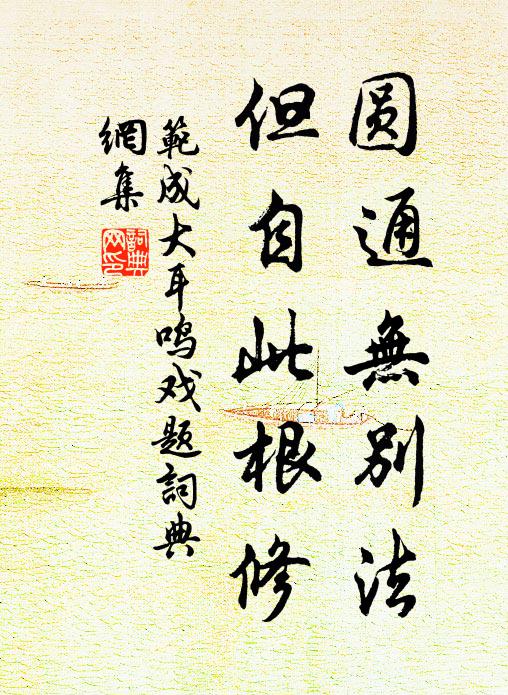 圆通無別法
但自此根修
範成大耳鸣戏题詞典
網集
詞典
网印